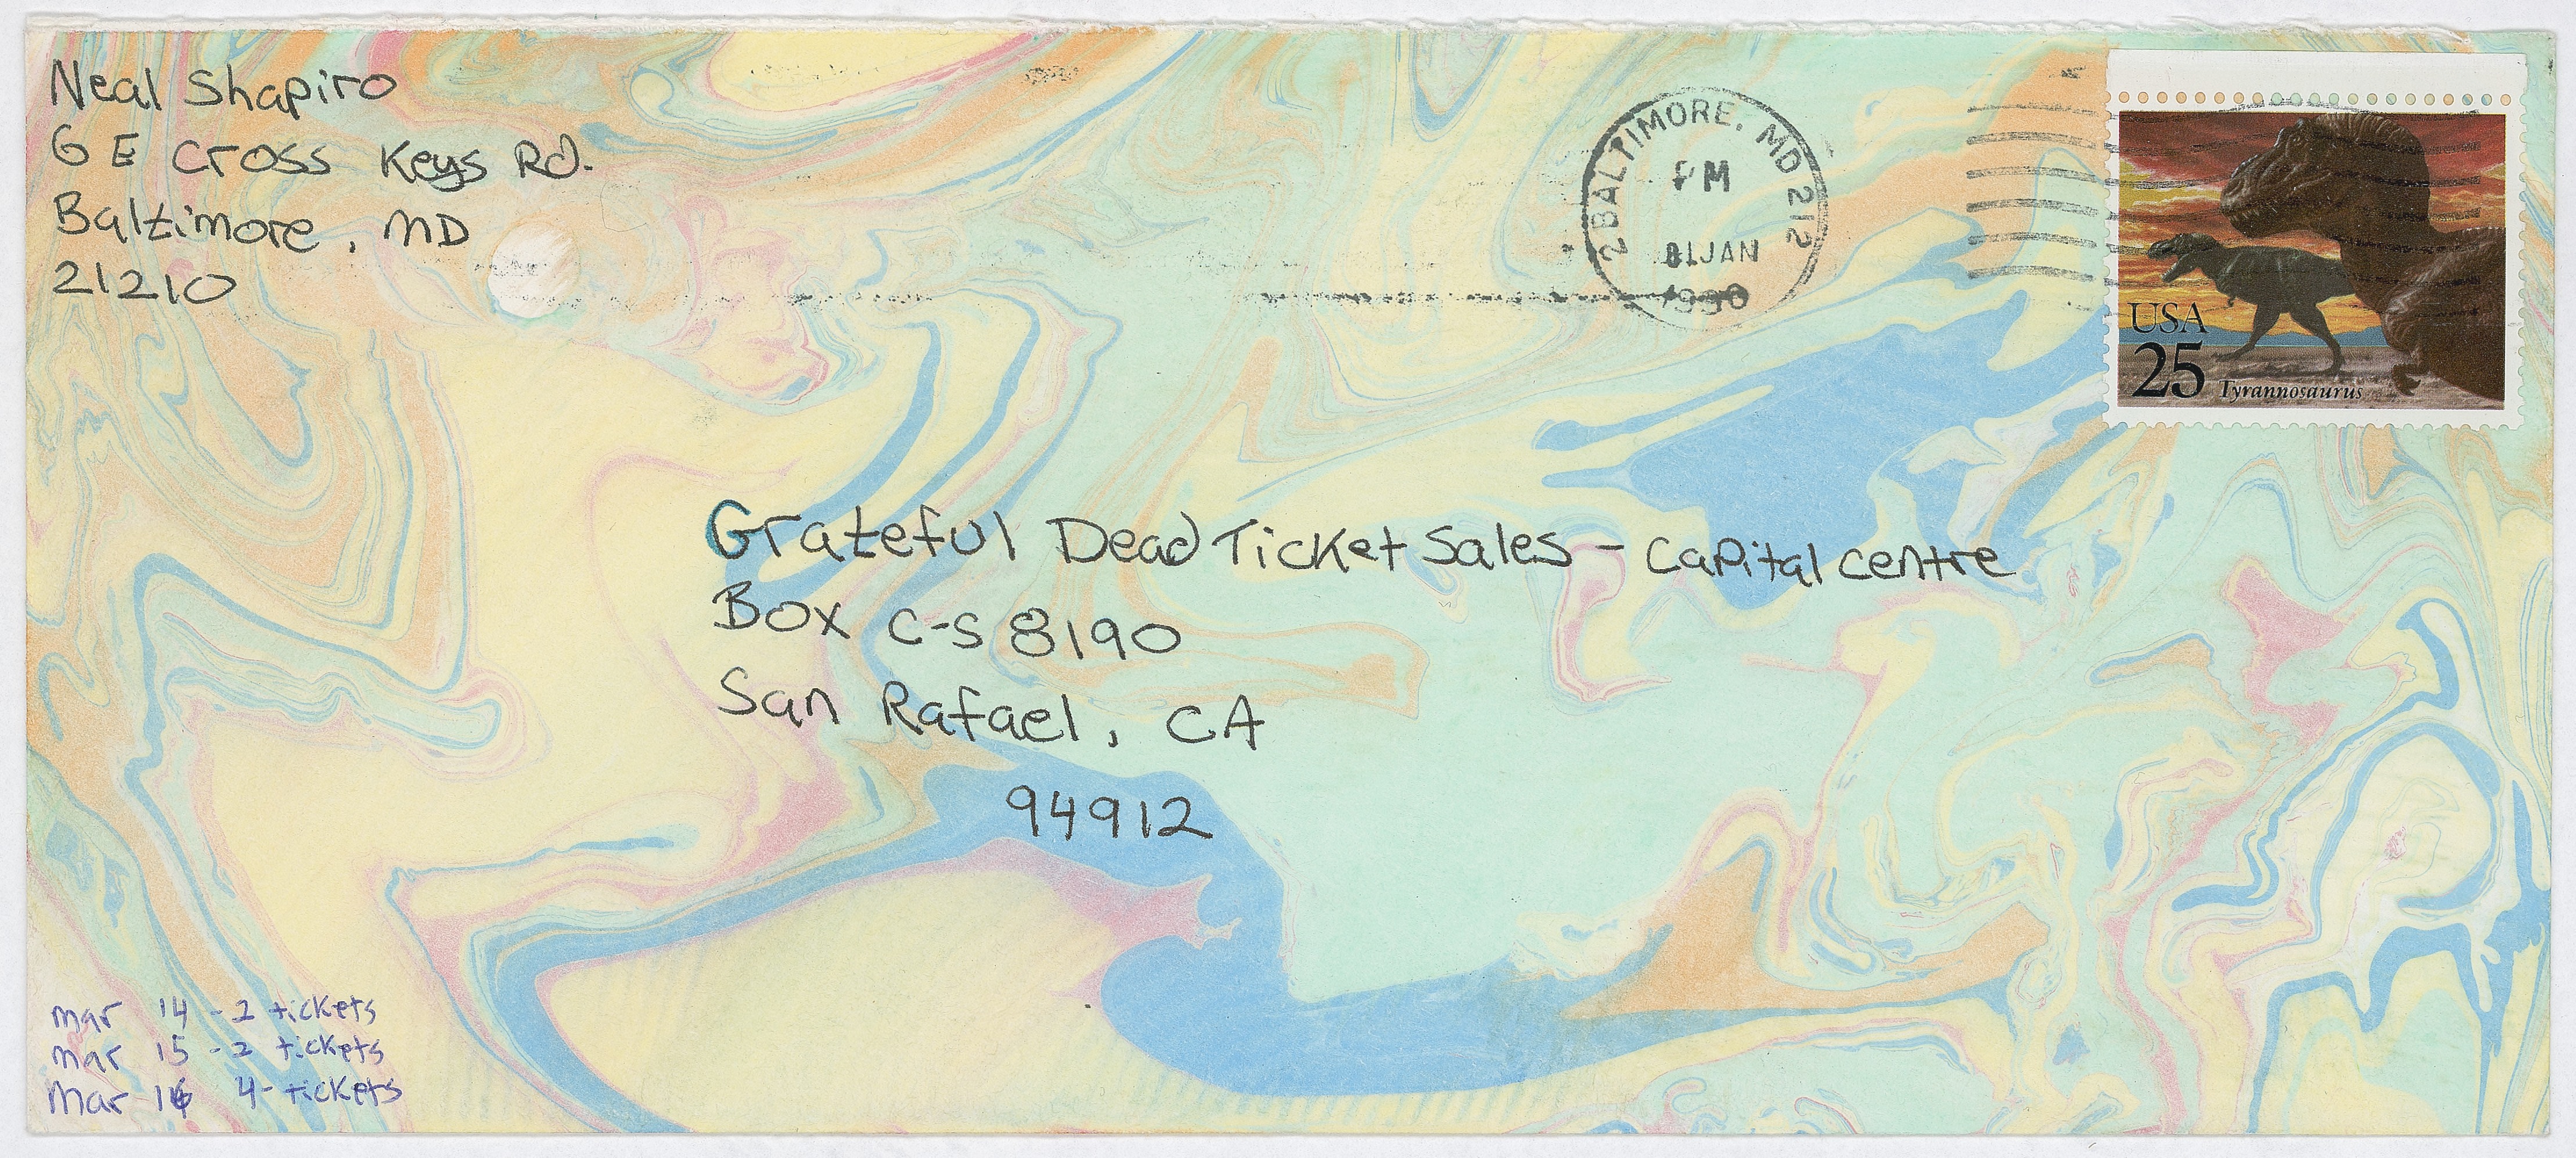 Neal Shapiro
6 E Cross Keys Rd.
Baltimore, MD
21210
BALTIMORE, MD 212
PM
JAN
1990
USA
25 Tyrannosaurus
Grateful Dead Ticket Sales - Capital Centre
Box C-S 8190
San Rafael, CA
94912
mar 14 - 2 tickets
mar 15 - 2 tickets
mar 16 4- tickets